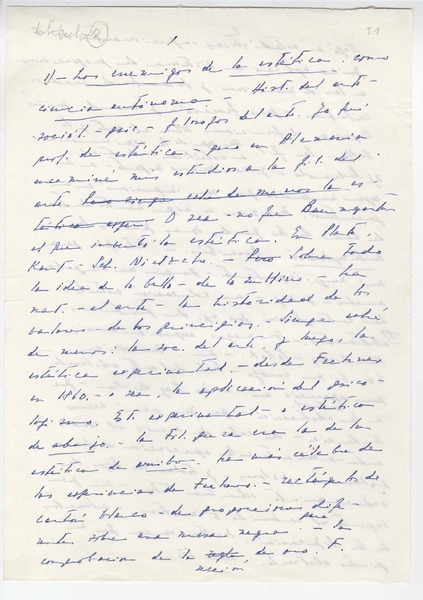 5.1
1
1) - Los enemigos de la estética. como
ciencia autónoma. - Hist. del arte
sociol. - psic. - filosofos del arte. Yo fuí
prof. de estética. - pero en Alemania
encaminé mis estudios a la fil. del
arte. O sea - no fue Baumgarten
el que inventó la estética. En Platón
Kant - Sch. Nietzsche. - Pero Sobre todo
la idea de lo bello - de lo sublime. - la
nat. - el arte - la historicidad de los
valores - de los principios. - Siempre
de menos: la soc. del arte, y luego, la
estética experimental. - desde Fechner
en 1860. - o sea, la aplicación del psico-
logismo. Est. experimental - o estética
de abajo. - la Fil. pura era la de la
estética de arriba. La más célebre de
las experiencias de Fechner. - rectángulos de
cartón blanco - de proporciones dife-
rentes sobre una mesa negra. - para la
comprobación de la de oro. F.
sección